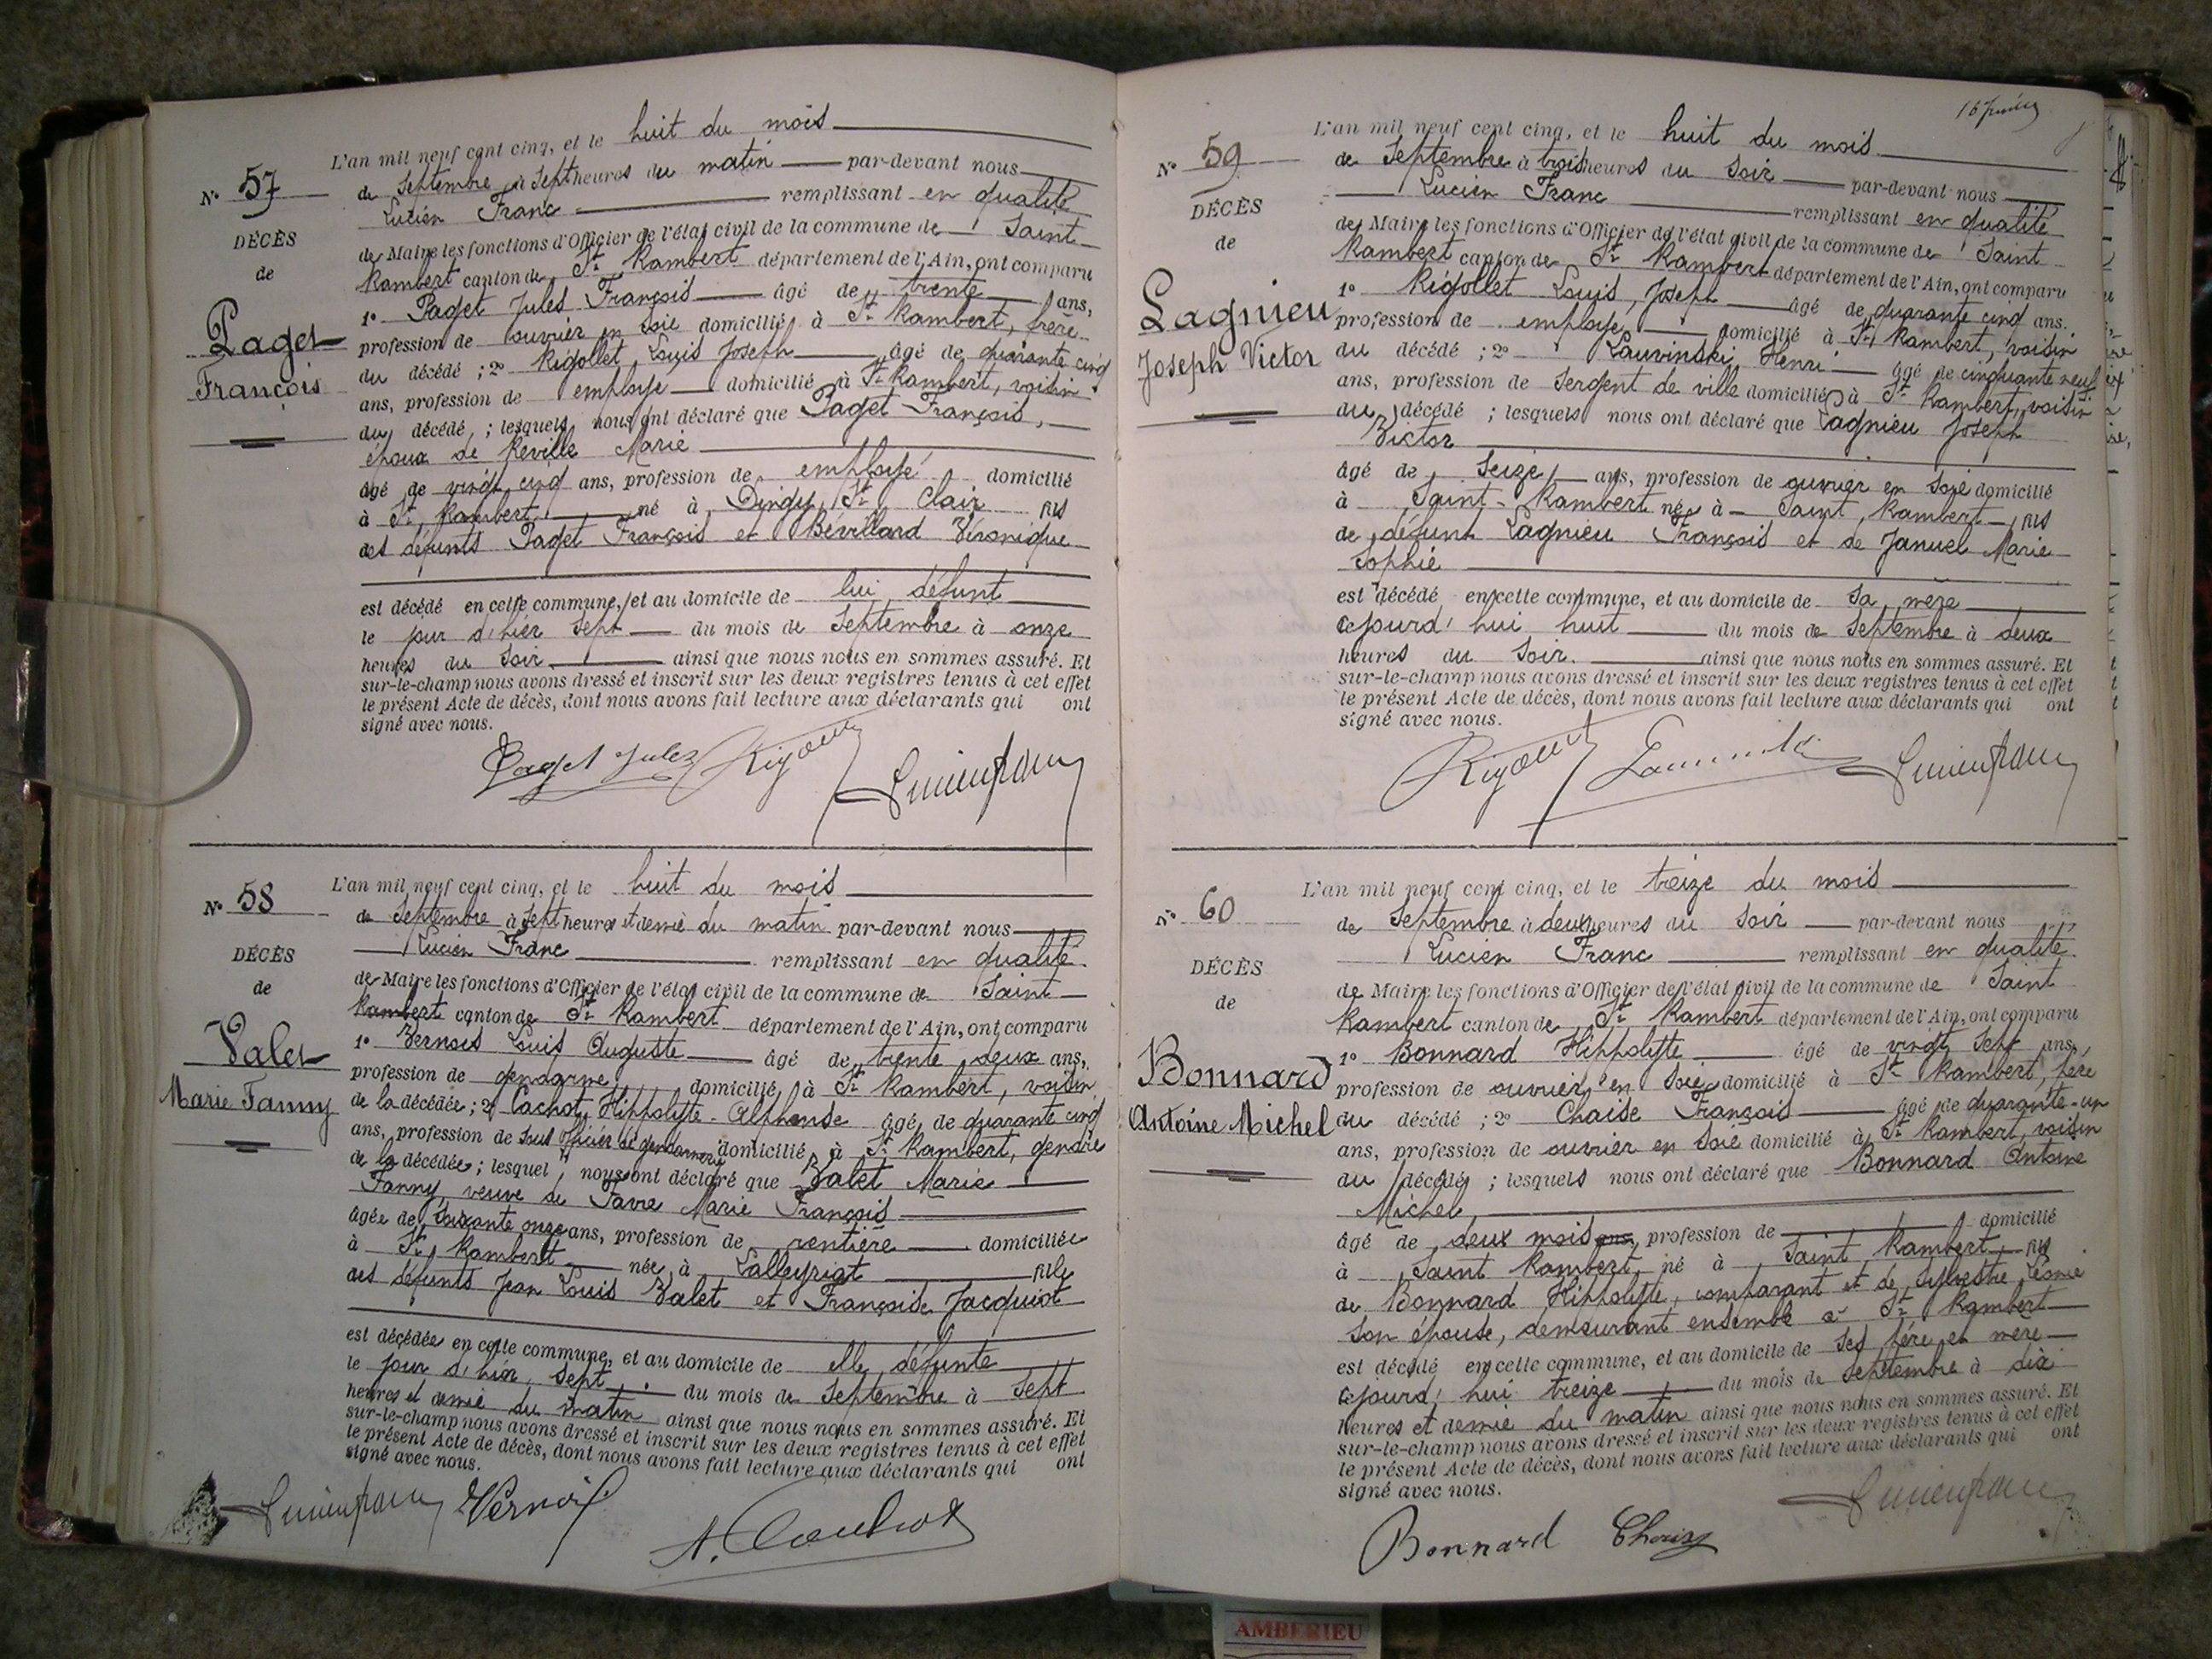 L'an mil neuf cent cinq, et le huit du mois
N° 57
de Septembre à Sept heures du matin par-devant nous
Lucien Franc remplissant en qualité
DÉCÈS
de Maire les fonctions d'Officier de l'état civil de la commune de Saint
de
Rambert canton de St Rambert département de l'Ain, ont comparu
1° Paget Jules François âgé de trente ans,
Paget
profession de ouvrier en soie domicilié à St Rambert, frère
François
du décédé ; 2° Rigollet Louis Joseph âgé de quarante cinq
ans, profession de employé domicilié à St Rambert, voisin
du décédé ; lesquels nous ont déclaré que Paget François,
époux de Réville Marie
âgé de vingt cinq ans, profession de employé domicilié
à St Rambert né à Dingy St Clair fils
des défunts Paget François et Bévillard Véronique
est décédé en cette commune, et au domicile de lui défunt
le jour d'hier Sept du mois de Septembre à onze
heures du Soir ainsi que nous nous en sommes assuré. Et
sur-le-champ nous avons dressé et inscrit sur les deux registres tenus à cet effet
le présent Acte de décès, dont nous avons fait lecture aux déclarants qui ont
signé avec nous.
Paget Jules Rigollet Lucien Franc
L'an mil neuf cent cinq, et le huit du mois
N° 58
de Septembre à Sept heures et demie du matin par-devant nous
Lucien Franc remplissant en qualité
DÉCÈS
de Maire les fonctions d'Officier de l'état civil de la commune de Saint
de
Rambert canton de St Rambert département de l'Ain, ont comparu
1° Vernois Louis Auguste âgé de trente deux ans,
Valet
profession de gendarme domicilié à St Rambert, voisin
Marie Fanny
de la décédée ; 2° Cachot Hippolyte Alphonse âgé de quarante cinq
ans, profession de Sous Officier de gendarmerie domicilié à St Rambert, gendre
de la décédée ; lesquels nous ont déclaré que Valet Marie
Fanny, veuve de Favre Marie François
âgée de Soixante onze ans, profession de rentière domiciliée
à St Rambert née à Lalleyriat fille
des défunts Jean Louis Valet et Françoise Jacquiot
est décédée en cette commune, et au domicile de elle défunte
le jour d'hier, Sept, du mois de Septembre à Sept
heures et demie du matin ainsi que nous nous en sommes assuré. Et
sur-le-champ nous avons dressé et inscrit sur les deux registres tenus à cet effet
le présent Acte de décès, dont nous avons fait lecture aux déclarants qui ont
signé avec nous.
Lucien Franc Vernois
L'an mil neuf cent cinq, et le huit du mois
N° 59
de Septembre à trois heures du Soir par-devant nous
Lucien Franc remplissant en qualité
DÉCÈS
de Maire les fonctions d'Officier de l'état civil de la commune de Saint
de
Rambert canton de St Rambert département de l'Ain, ont comparu
1° Rigollet Louis, Joseph âgé de quarante cinq ans.
Lagnieu
profession de employé domicilié à St Rambert, voisin
Joseph Victor
du décédé ; 2° Lauvinski Henri âgé de cinquante neuf
ans, profession de Sergent de ville domicilié à St Rambert, voisin
du décédé ; lesquels nous ont déclaré que Lagnieu Joseph
Victor
âgé de Seize ans, profession de ouvrier en Soie domicilié
à Saint-Rambert né à Saint Rambert fils
de défunt Lagnieu François et de Januel Marie
Sophie
est décédé en cette commune, et au domicile de Sa mère
cejourd'hui huit du mois de Septembre à deux
heures du Soir. ainsi que nous nous en sommes assuré. Et
sur-le-champ nous avons dressé et inscrit sur les deux registres tenus à cet effet
le présent Acte de décès, dont nous avons fait lecture aux déclarants qui ont
signé avec nous.
Rigollet Lucien Franc
L'an mil neuf cent cinq, et le treize du mois
N° 60
de Septembre à deux heures du Soir par-devant nous
Lucien Franc remplissant en qualité
DÉCÈS
de Maire les fonctions d'Officier de l'état civil de la commune de Saint
de
Rambert canton de St Rambert département de l'Ain, ont comparu
1° Bonnard Hippolyte âgé de vingt Sept ans,
Bonnard
profession de ouvrier en Soie domicilié à St Rambert, père
Antoine Michel
du décédé ; 2° Chaise François âgé de quarante-un
ans, profession de ouvrier en Soie domicilié à St Rambert, voisin
du décédé ; lesquels nous ont déclaré que Bonnard Antoine
Michel,
âgé de deux mois ans, profession de domicilié
à Saint Rambert, né à Saint Rambert, fils
de Bonnard Hippolyte, comparant et de Sylvestre Léonie
Son épouse, demeurant ensemble à St Rambert
est décédé en cette commune, et au domicile de Ses père et mère
cejourd'hui treize du mois de Septembre à dix
heures et demie du matin ainsi que nous nous en sommes assuré. Et
sur-le-champ nous avons dressé et inscrit sur les deux registres tenus à cet effet
le présent Acte de décès, dont nous avons fait lecture aux déclarants qui ont
signé avec nous.
Lucien Franc
Bonnard Chaise
AMBERIEU